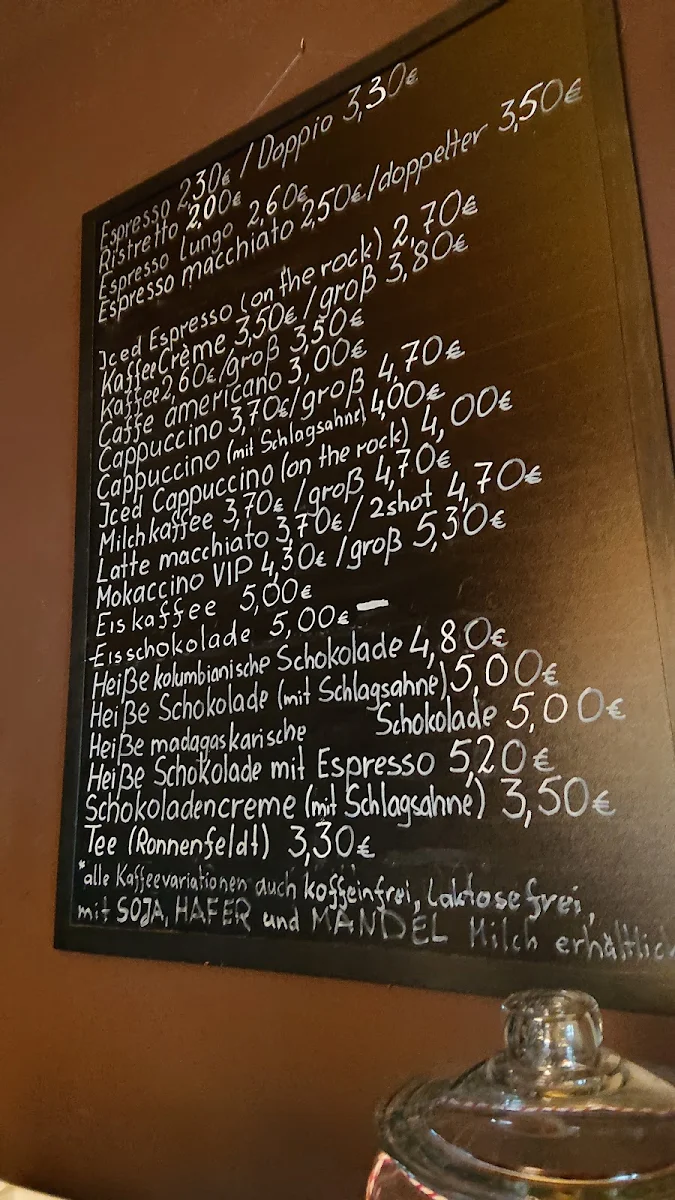 Espresso 2,30€ / Doppio 3,30€
Ristretto 2,00€
Espresso Lungo 2,60€
Espresso macchiato 2,50€/doppelter 3,50€
Iced Espresso (on the rock) 2,70€
KaffeeCrème 3,50€/groß 3,80€
Kaffee 2,60€/groß 3,50€
Caffe americano 3,00€
Cappuccino 3,70€/groß 4,70€
Cappuccino (mit Schlagsahne) 4,00€
Iced Cappuccino (on the rock) 4,00€
Milchkaffee 3,70€ /groß 4,70€
Latte macchiato 3,70€/ 2shot 4,70€
Mokaccino VIP 4,30€ /groß 5,30€
Eiskaffee 5,00€
Eisschokolade 5,00€
Heiße kolumbianische Schokolade 4,80€
Heiße Schokolade (mit Schlagsahne) 5,00€
Heiße madagaskarische Schokolade 5,00€
Heiße Schokolade mit Espresso 5,20€
Schokoladencreme (mit Schlagsahne) 3,50€
Tee (Ronnenfeldt) 3,30€
*alle Kaffeevariationen auch koffeinfrei, Laktosefrei,
mit SOJA, HAFER und MANDEL Milch erhältlich